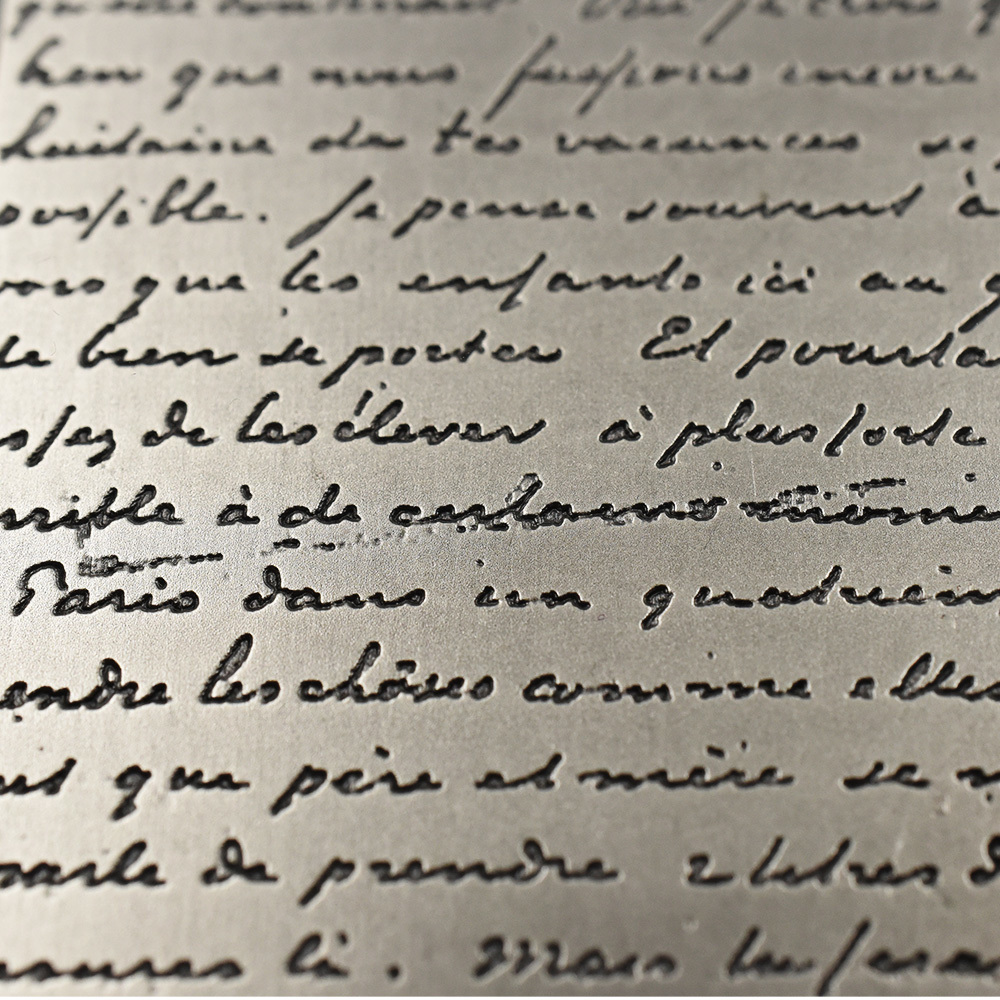 bien que nous fussions encore
huitaine de tes vacances se
possible. Je pense souvent à
vois que les enfants ici au
de bien se porter Et pourta
ssez de les élever à plus forte
rrible à de certains
Paris dans un quatrièm
endre les choses comme elles
que père et mère se
parle de prendre 2 litres d
là. Mais tu